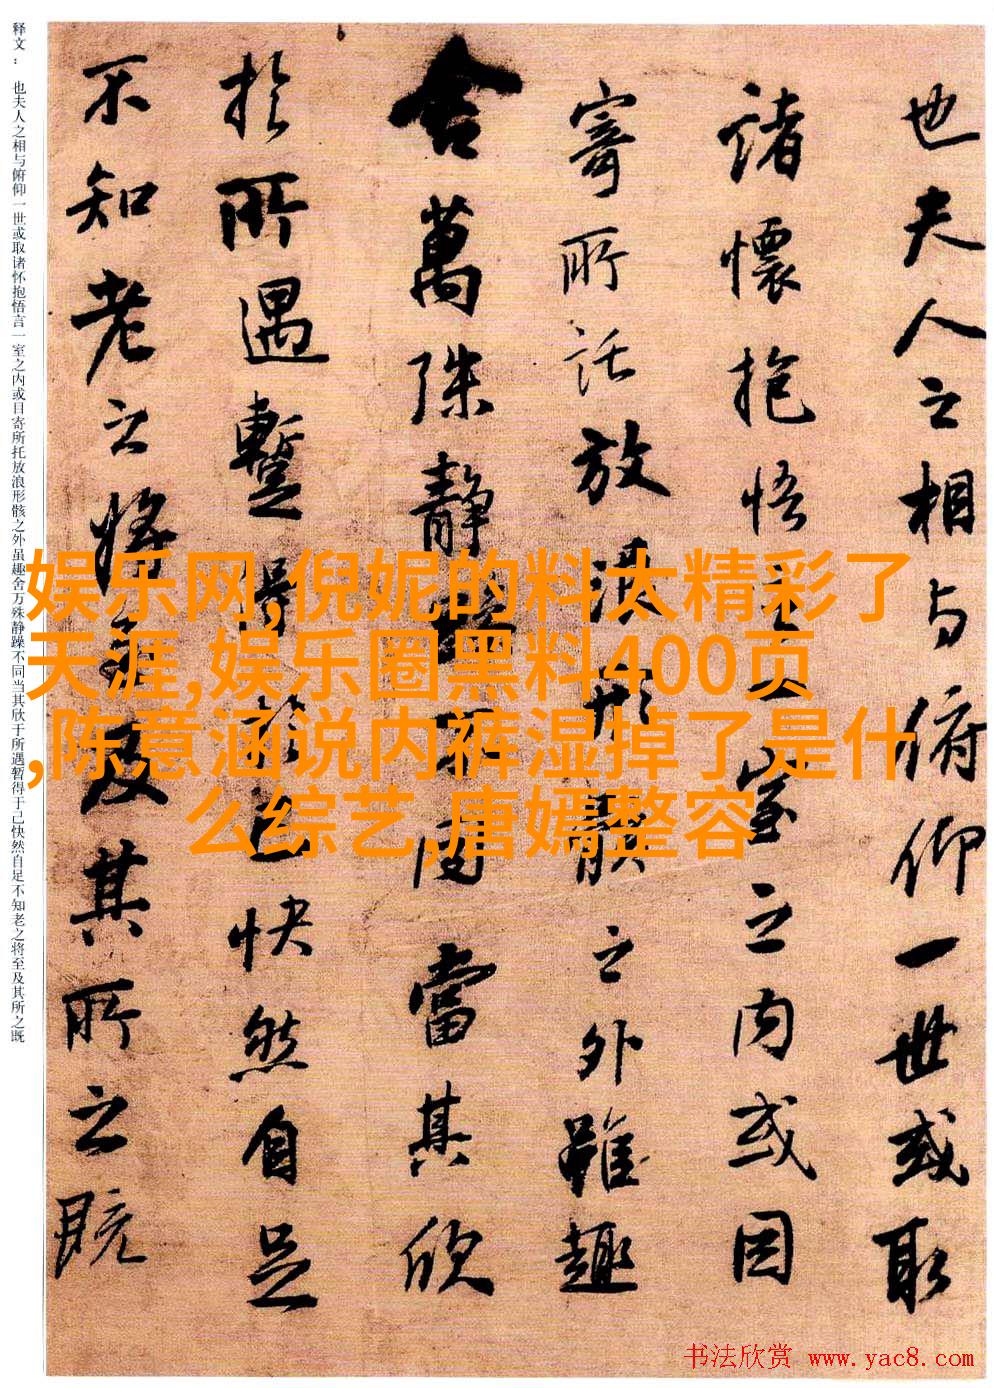 释文： 也夫人之相与俯仰一世或取诸怀抱悟言一室之内或目寄所托放浪形骸之外虽趣舍万殊静躁不同当其欣于所遇暂得于己快然自足不知老之将至及其所之既
也夫人之相与俯仰一世或取
諸懷抱悟言一室之内或因
寄所託放浪形骸之外雖趣
舍萬殊静躁不同當其欣
於所遇蹔得於己快然自足
不知老之將至及其所之既
娱乐网,倪妮的料太精彩了
天涯,娱乐圈黑料400页
,陈意涵说内裤湿掉了是什
么综艺,唐嫣整容
书法欣赏 www.yac8.com